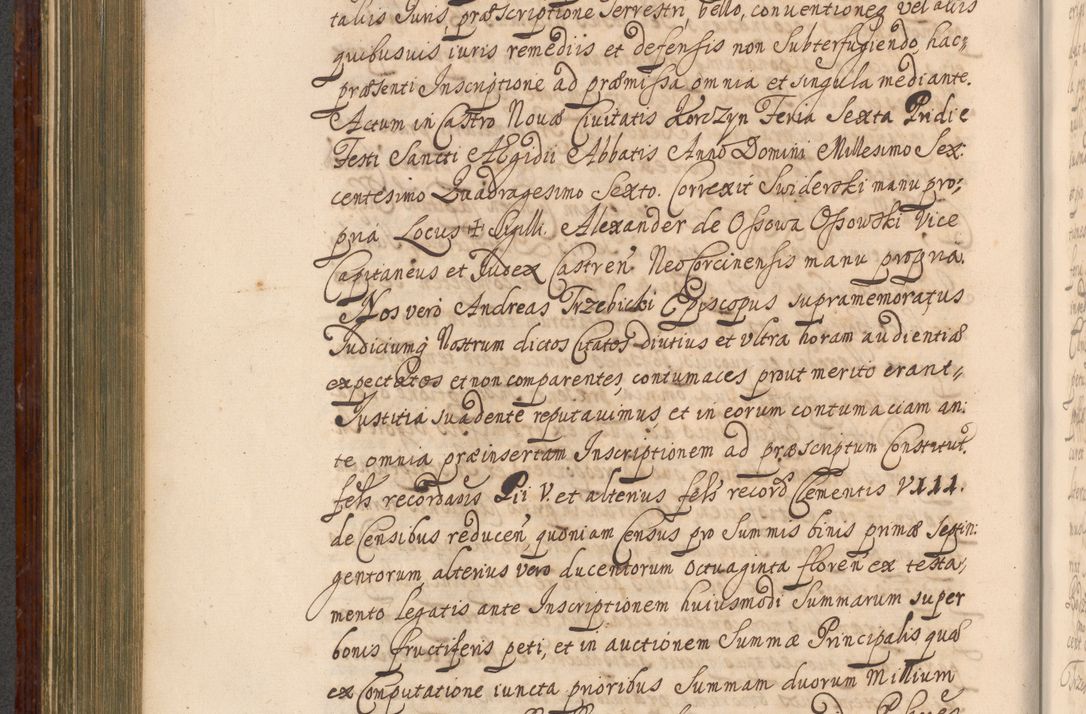 talis Juris, præscriptione Terrestri, bello, conventiones vel aliis
quibusuis iuris remediis et defensis non Subterfugiendo, hac,,
præsenti Inscriptione ad præmissa omnia et singula mediante.
Actum in Castro Novæ Civitatis Korczyn Feria Sexta Pridie
Festi Sancti Ægidii Abbatis Anno Domini Millesimo Sex:
centesimo Quadragesimo Sexto. Correxit Swiderski manu pro,,
pria Locus ‡ Sigilli. Alexander de Ossowa Ossowski Vice
Capitaneus et Judex Castren Neo Corcinensis manu propria.
Nos vero Andreas Trzebicki Episcopus supramemoratus
Judiciumq Nostrum dictos Citatos diutius et vltra horam audientiæ
expectatos et non comparentes, contumaces prout merito erant,,
Justitia suadente reputauimus, et in eorum contumaciam an:
te omnia præinsertam Inscriptionem ad præscriptum Constitut.
fels recordaois Pii V. et alterius fels record Clementis VIII.
de Censibus reducen, quoniam Census pro Summis binis primæ Septin:
gentorum, alterius vero ducentorum Octuaginta floren ex testa,
mento legatis ante Inscriptionem huiusmodi Summarum super
bonis fructiferis peti, et in auctionem Summæ Principalis quæ
ex Computatione iuncta prioribus Summam duorum Millium